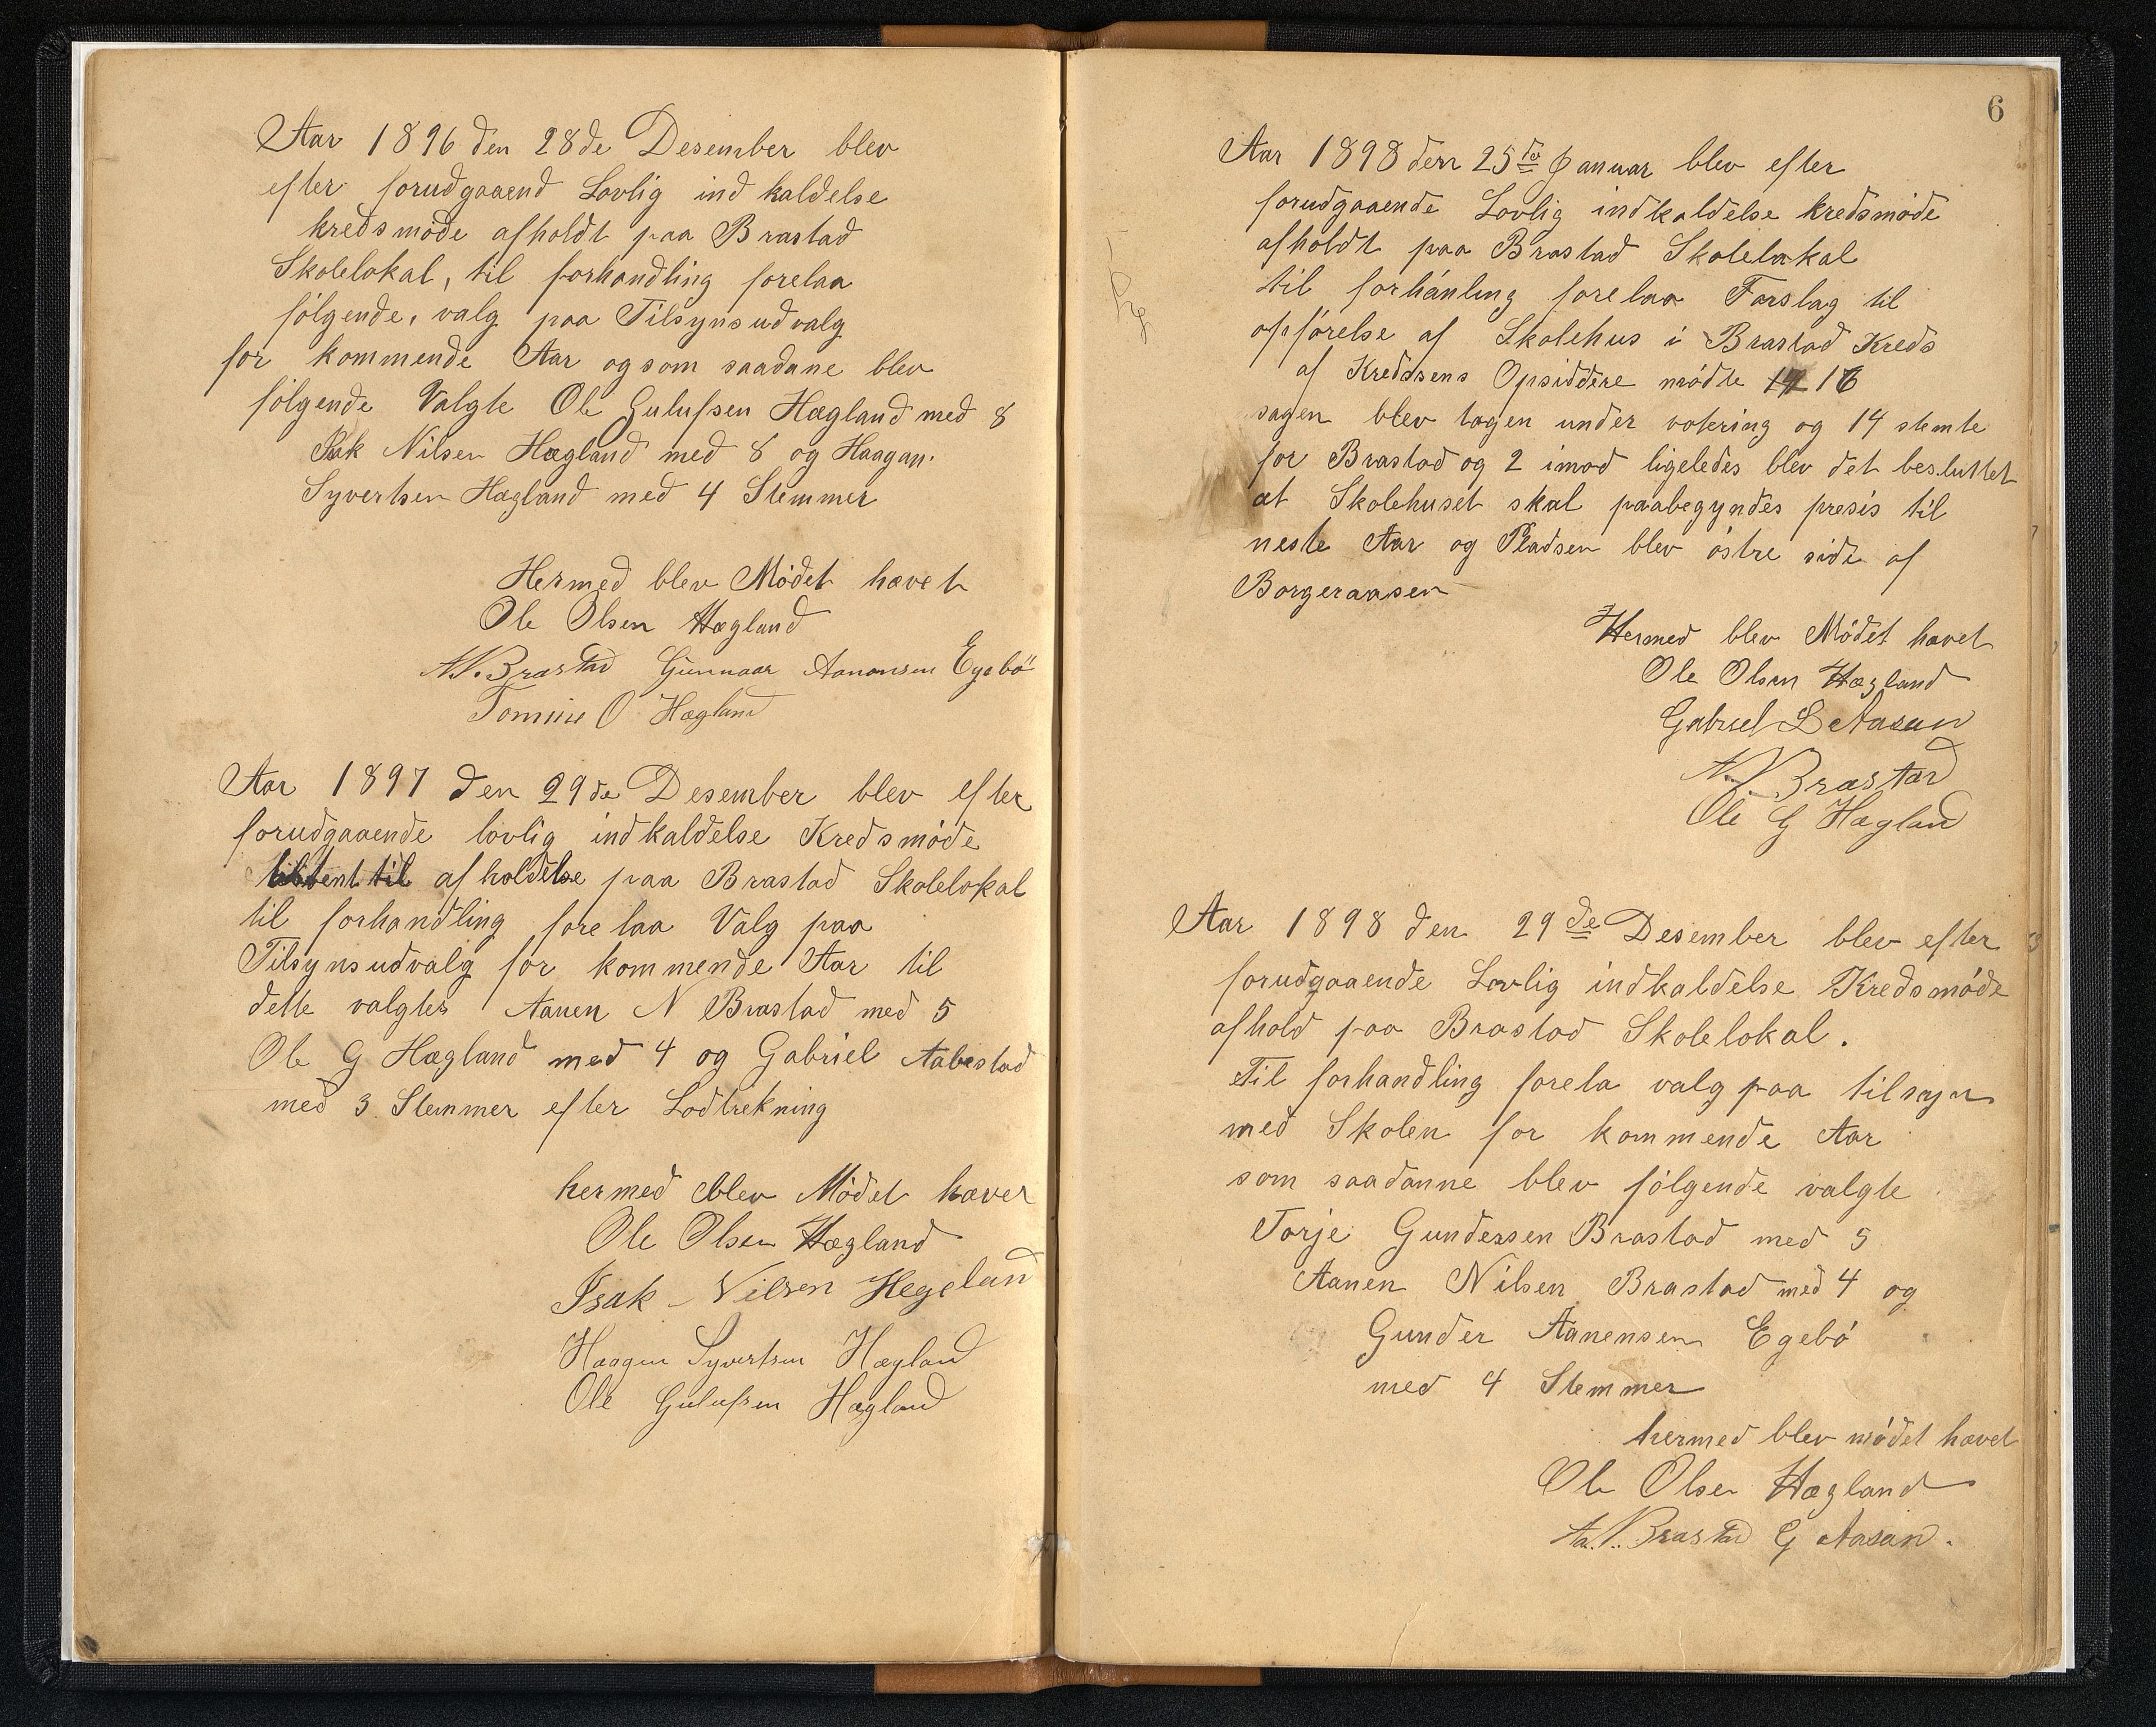 Aar 1896 den 28de Desember blev
efter forudgaaend Lovlig ind kaldelse
kredsmöde afholdt paa Brastad
Skolelokal, til forhandling forelaa
følgende, valg paa Tilsynsudvalg
for kommende Aar og som saadane blev
følgende Valgte Ole Gulufsen Hægland med 8
Isak Nilsen Hægland med 8 og Haagan
Syvertsen Hægland med 4 Stemmer
Hermed blev Mödet hævet
Ole Olsen Hægland
N. Brastad Gunnaar Aanonsen Egebö
Tomine O Hægland
Aar 1897 den 29de Desember blev efter
forudgaaende lovlig indkaldelse Kredsmöde
afholdelse paa Brastad Skolelokal
til forhandling forelaa Valg paa
Tilsynsudvalg for kommende Aar til
dette valgtes Aanen N Brastad med 5
Ole G Hægland med 4 og Gabriel Aabestad
med 3 Stemmer efter Lodtrekning
hermed blev Mödet hæver
Ole Olsen Hægland
Isak Nilsen Hegeland
Haagen Syvertsen Hægland
Ole Gulufsen Hægland
6
Aar 1898 den 25de Januar blev efter
forudgaaende Lovlig indkaldelse kredsmöde
afholdt paa Brastad Skolelokal
til forhanling forelaa Forslag til
opförelse af Skolehus i Brastad Kreds
af Kredsens Opsiddere mödte 16
sagen blev tagen under votering og 14 stemte
for Brastad og 2 imod ligeledes blev det besluttet
at Skolehuset skal paabegyndes presis til
neste Aar og Pladsen blev östre side af
Borgeraasen
Hermed blev Mödet hævet
Ole Olsen Hægland
Gabriel L Aasan
N. Brastad
Ole G Hægland
Aar 1898 den 29de Desember blev efter
forudgaaende Lovlig indkaldelse Kredsmöde
afhold paa Brastad Skolelokal.
Til forhandling forela valg paa tilsyn
med Skolen for kommende Aar
som saadanne blev fölgende valgte
Torje Gundersen Brastad med 5
Aanen Nilsen Brastad med 4 og
Gunder Aanensen Egebö
med 4 Stemmer
hermed blev mödet hævet
Ole Olsen Hægland
Aa. N. Brastad G Aasan.